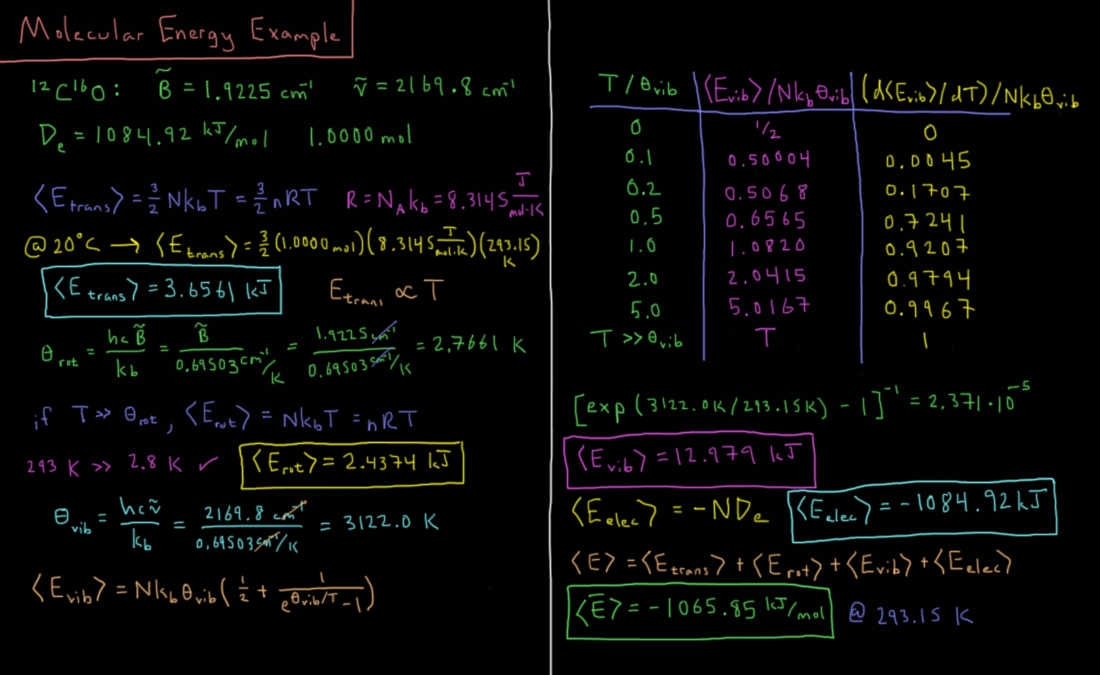 Molecular Energy Example
¹²C¹⁶O: B̃ = 1.9225 cm⁻¹ ṽ = 2169.8 cm⁻¹
Dₑ = 1084.92 kJ/mol 1.0000 mol
⟨E_trans⟩ = 3/2 Nk_bT = 3/2 nRT R = N_A k_b = 8.3145 J/mol·K
@ 20°C → ⟨E_trans⟩ = 3/2 (1.0000 mol)(8.3145 J/mol·K)(293.15) K
⟨E_trans⟩ = 3.6561 kJ E_trans ∝ T
θ_rot = hcB̃/k_b = B̃/0.69503 cm⁻¹/K = 1.9225 cm⁻¹/0.69503 cm⁻¹/K = 2.7661 K
if T >> θ_rot, ⟨E_rot⟩ = Nk_bT = nRT
293 K >> 2.8 K ✓ ⟨E_rot⟩ = 2.4374 kJ
θ_vib = hcṽ/k_b = 2169.8 cm⁻¹/0.69503 cm⁻¹/K = 3122.0 K
⟨E_vib⟩ = Nk_bθ_vib(1/2 + 1/(e^(θvib/T) - 1))
T/θ_vib ⟨E_vib⟩/Nk_bθ_vib (d⟨E_vib⟩/dT)/Nk_bθ_vib
0 1/2 0
0.1 0.50004 0.0045
0.2 0.5068 0.1707
0.5 0.6565 0.7241
1.0 1.0820 0.9207
2.0 2.0415 0.9794
5.0 5.0167 0.9967
T >> θ_vib T 1
[exp(3122.0K/293.15K) - 1]⁻¹ = 2.371·10⁻⁵
⟨E_vib⟩ = 12.979 kJ
⟨E_elec⟩ = -NDₑ ⟨E_elec⟩ = -1084.92 kJ
⟨E⟩ = ⟨E_trans⟩ + ⟨E_rot⟩ + ⟨E_vib⟩ + ⟨E_elec⟩
⟨E̅⟩ = -1065.85 kJ/mol @ 293.15 K